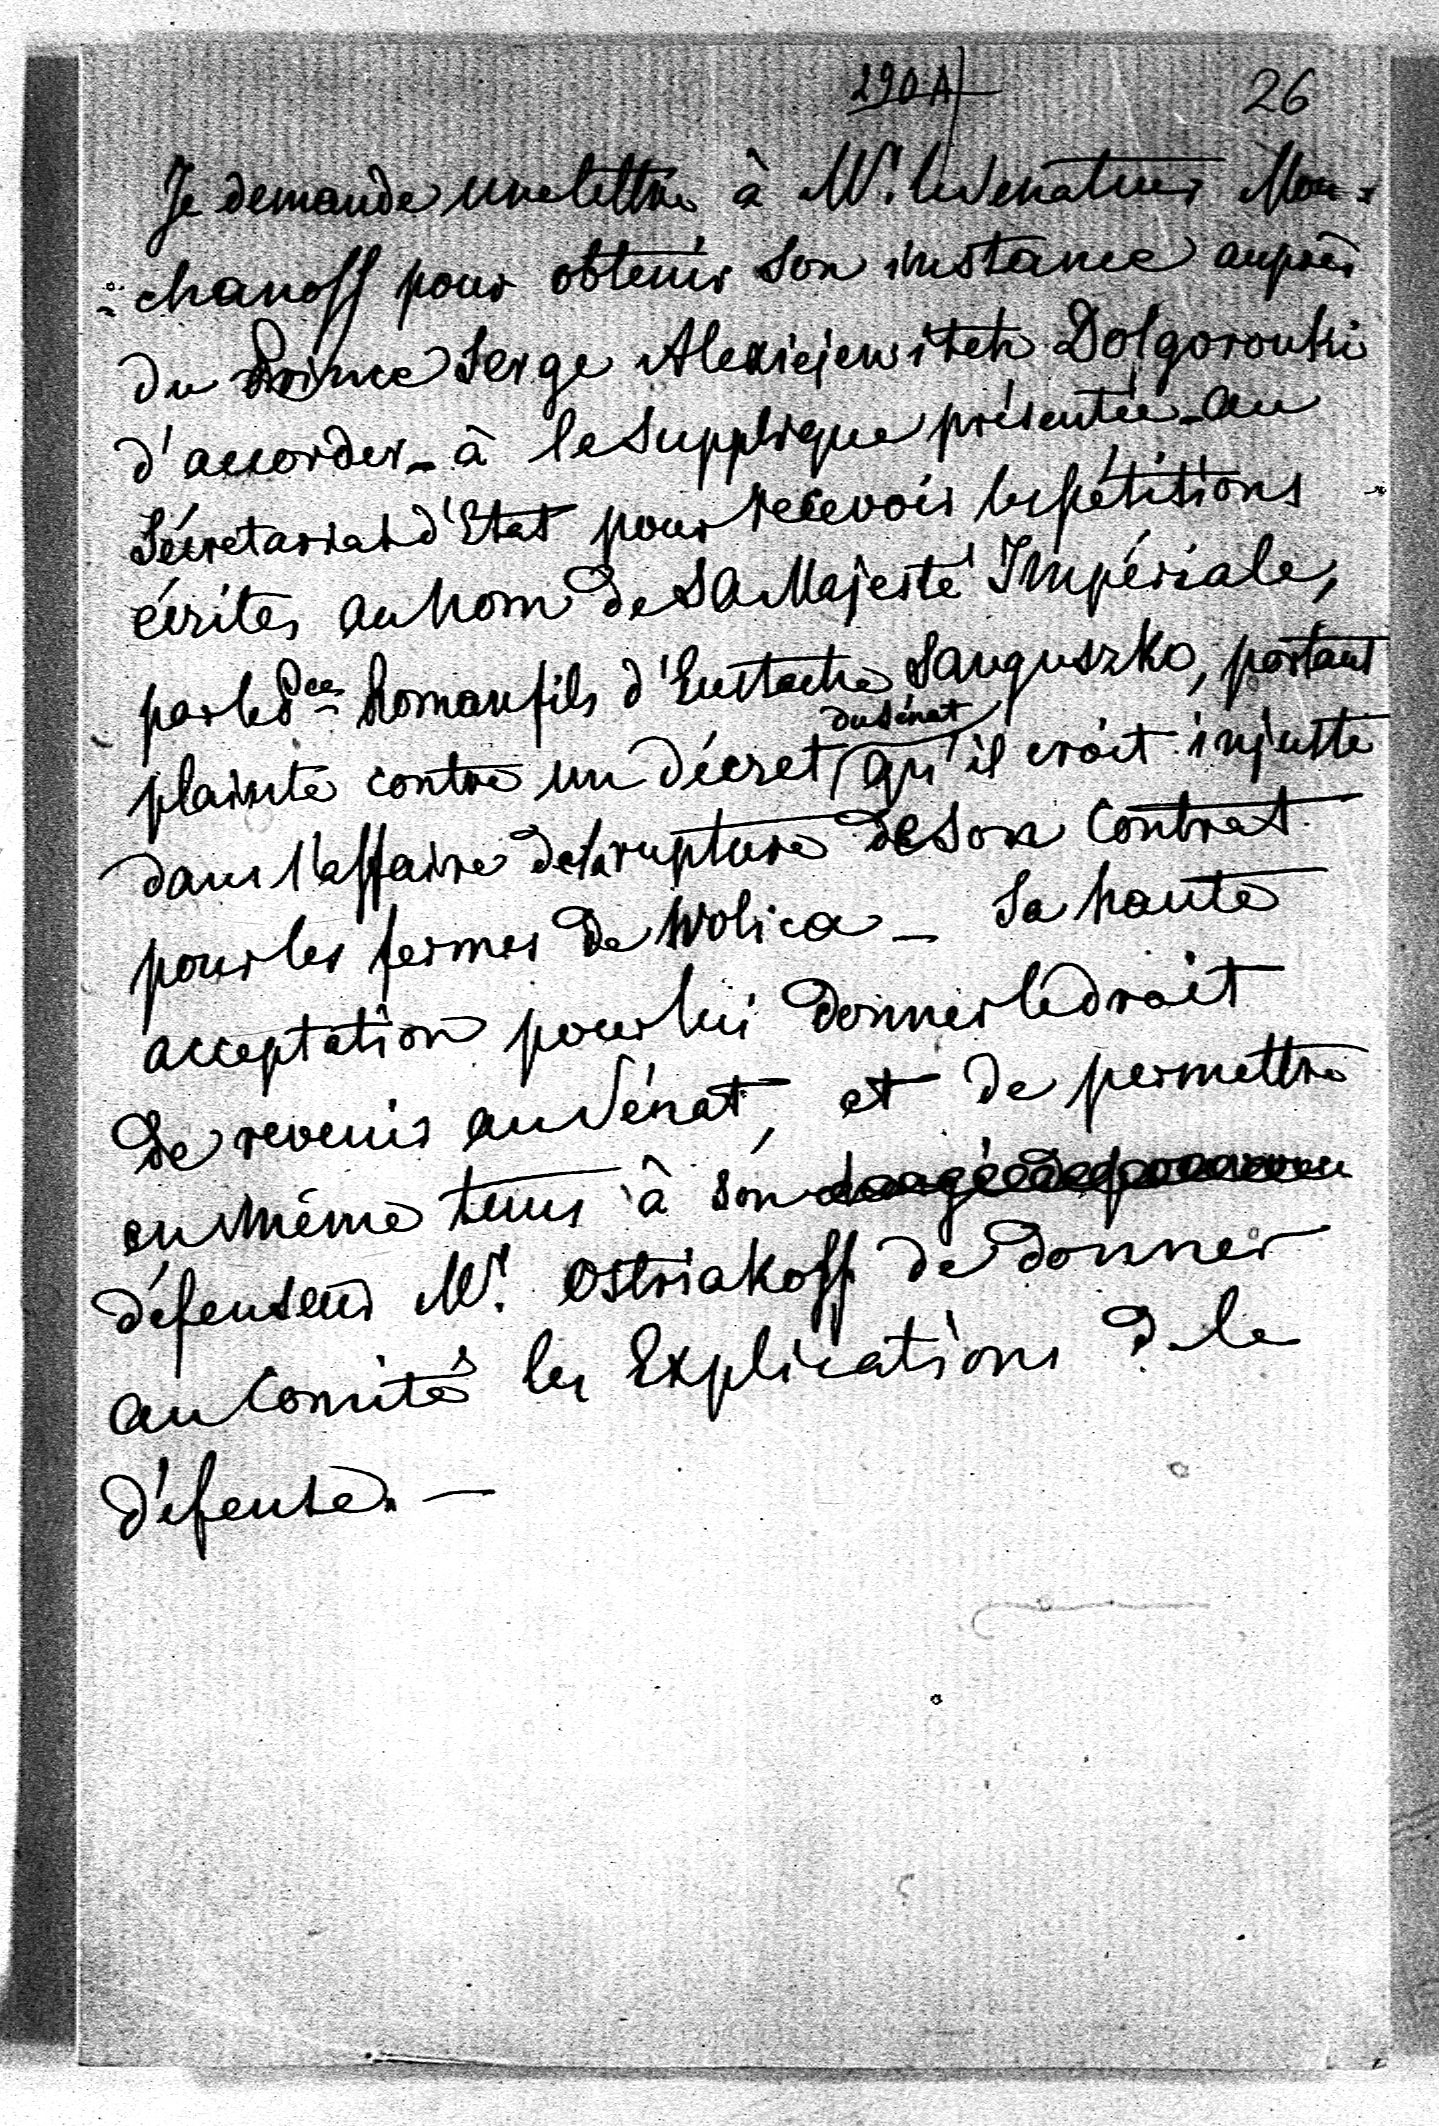 290 A 26
Je demande une lettre à Mr. le Senateur Mou-
chanoff pour obtenir son instance auprès
du Prince Serge Alexiejewitch Dolgorouki
d'accorder - à la supplique présentée - au
Sécretariat d'Etat pour recevoir les pétitions
écrites au nom de Sa Majesté Impériale,
par le Pce Roman fils d'Eustache Sanguszko, portant
du Sénat
plainte contre un décret, qu'il croit injuste
dans l'affaire de la rupture de son contrat
pour les fermes de Wolica - Sa haute
acceptation pour lui donner le droit
de revenir au Sénat, et de permettre
en même tems à son
défenseur Mr. Ostriakoff de donner
au Comité les Explications de la
défense. —